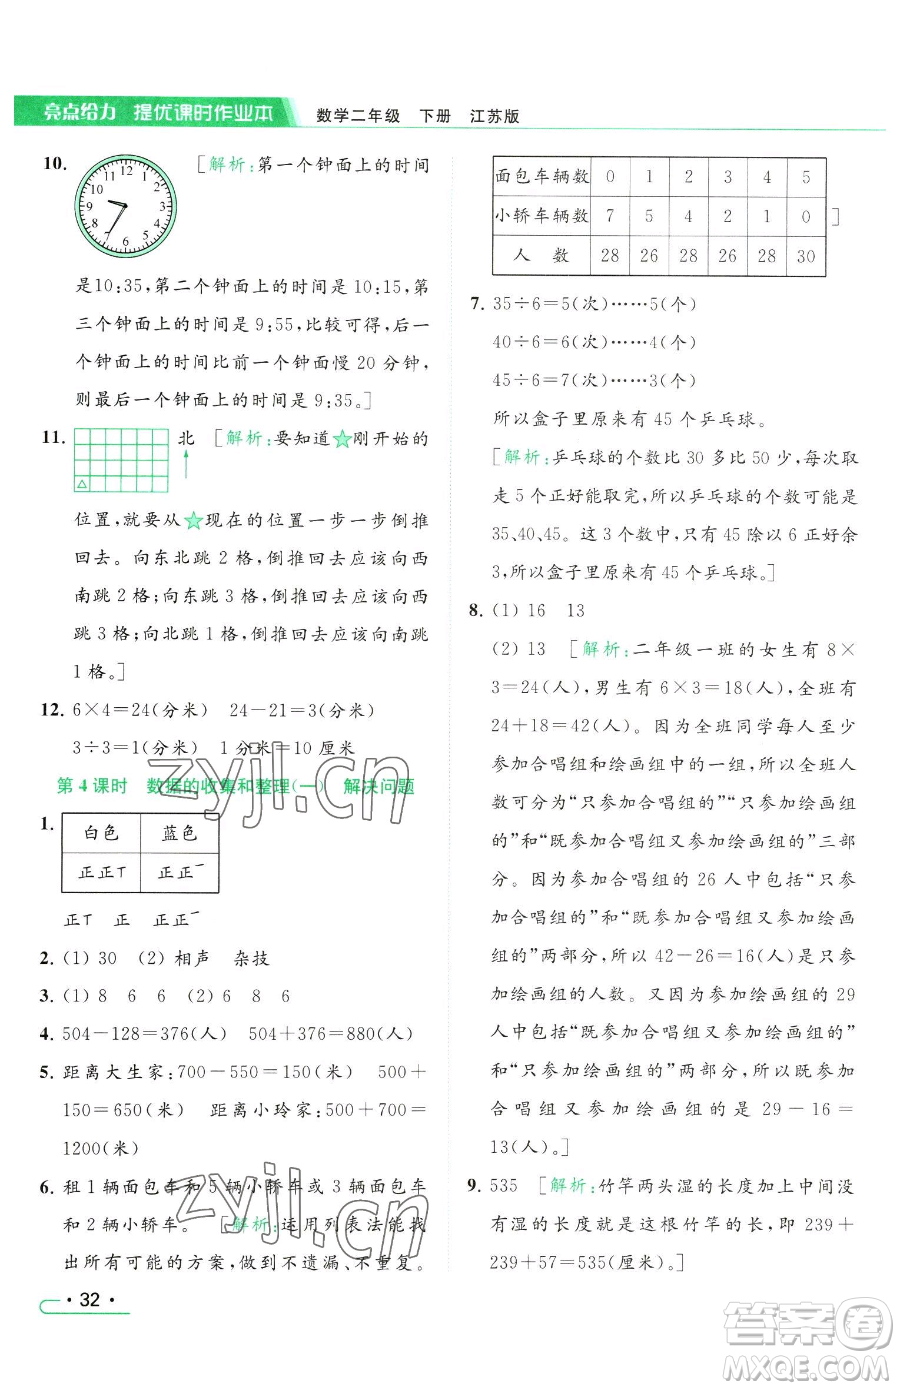 亮点给力 提优课时作业本 数学二年级 下册 江苏版
10. [解析:第一个钟面上的时间
是10:35,第二个钟面上的时间是 10:15,第
三个钟面上的时间是 9:55,比较可得,后一
个钟面上的时间比前一个钟面慢 20 分钟,
则最后一个钟面上的时间是 9:35。]
11. 北 [解析:要知道☆刚开始的
位置,就要从☆现在的位置一步一步倒推
回去。向东北跳 2 格,倒推回去应该向西
南跳 2 格;向东跳 3 格,倒推回去应该向西
跳 3 格;向北跳 1 格,倒推回去应该向南跳
1 格。]
12. 6×4=24(分米) 24-21=3(分米)
3÷3=1(分米) 1分米=10厘米
第 4 课时 数据的收集和整理(一) 解决问题
1.
白色 蓝色
正正丅 正正一
正丅 正 正正一
2. (1) 30 (2) 相声 杂技
3. (1) 8 6 6 (2) 6 8 6
4. 504-128=376(人) 504+376=880(人)
5. 距离大生家:700-550=150(米) 500+
150=650(米) 距离小玲家:500+700=
1200(米)
6. 租 1 辆面包车和 5 辆小轿车或 3 辆面包车
和 2 辆小轿车。 [解析:运用列表法能找
出所有可能的方案,做到不遗漏、不重复。
面包车辆数 0 1 2 3 4 5
小轿车辆数 7 5 4 2 1 0
人 数 28 26 28 26 28 30
]
7. 35÷6=5(次)……5(个)
40÷6=6(次)……4(个)
45÷6=7(次)……3(个)
所以盒子里原来有 45 个乒乓球。
[解析:乒乓球的个数比 30 多比 50 少,每次取
走 5 个正好能取完,所以乒乓球的个数可能是
35、40、45。这 3 个数中,只有 45 除以 6 正好余
3,所以盒子里原来有 45 个乒乓球。]
8. (1) 16 13
(2) 13 [解析:二年级一班的女生有 8×
3=24(人),男生有 6×3=18(人),全班有
24+18=42(人)。因为全班同学每人至少
参加合唱组和绘画组中的一组,所以全班人
数可分为“只参加合唱组的”“只参加绘画组
的”和“既参加合唱组又参加绘画组的”三部
分。因为参加合唱组的 26 人中包括“只参
加合唱组的”和“既参加合唱组又参加绘画
组的”两部分,所以 42-26=16(人)是只参
加绘画组的人数。又因为参加绘画组的 29
人中包括“既参加合唱组又参加绘画组的”
和“只参加绘画组的”两部分,所以既参加
合唱组又参加绘画组的是 29-16=
13(人)。]
9. 535 [解析:竹竿两头湿的长度加上中间没
有湿的长度就是这根竹竿的长,即 239+
239+57=535(厘米)。]
· 32 ·
zyjl.cn
zyjl.cn
答案圈
MXQE.COM